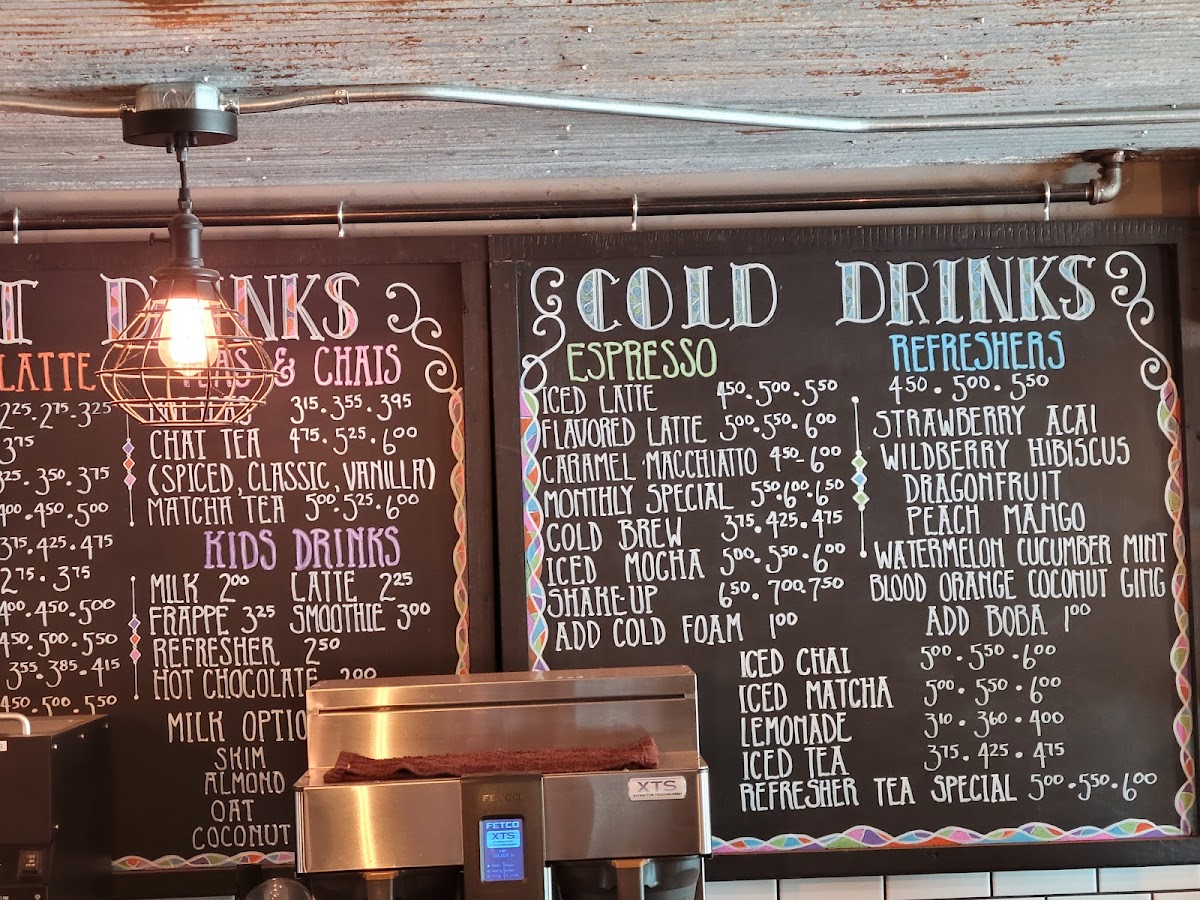 DRINKS
LATTE
2²⁵·2⁷⁵·3²⁵
3⁷⁵
3²⁵·3⁵⁰·3⁷⁵
4⁰⁰·4⁵⁰·5⁰⁰
3⁷⁵·4²⁵·4⁷⁵
2⁷⁵·3⁷⁵
4⁰⁰·4⁵⁰·5⁰⁰
4⁵⁰·5⁰⁰·5⁵⁰
3⁵⁵·3⁸⁵·4¹⁵
4⁵⁰·5⁰⁰·5⁵⁰
TEAS & CHAIS
3¹⁵·3⁵⁵·3⁹⁵
CHAI TEA 4⁷⁵·5²⁵·6⁰⁰
(SPICED, CLASSIC, VANILLA)
MATCHA TEA 5⁰⁰·5²⁵·6⁰⁰
KIDS DRINKS
MILK 2⁰⁰ LATTE 2²⁵
FRAPPE 3²⁵ SMOOTHIE 3⁰⁰
REFRESHER 2⁵⁰
HOT CHOCOLATE
MILK
SKIM
ALMOND
OAT
COCONUT
COLD DRINKS
ESPRESSO
ICED LATTE 4⁵⁰·5⁰⁰·5⁵⁰
FLAVORED LATTE 5⁰⁰·5⁵⁰·6⁰⁰
CARAMEL MACCHIATO 4⁵⁰-6⁰⁰
MONTHLY SPECIAL 5⁵⁰·6⁰⁰·6⁵⁰
COLD BREW 3⁷⁵·4²⁵·4⁷⁵
ICED MOCHA 5⁰⁰·5⁵⁰·6⁰⁰
SHAKE-UP 6⁵⁰·7⁰⁰·7⁵⁰
ADD COLD FOAM 1⁰⁰
REFRESHERS
4⁵⁰·5⁰⁰·5⁵⁰
STRAWBERRY ACAI
WILDBERRY HIBISCUS
DRAGONFRUIT
PEACH MANGO
WATERMELON CUCUMBER MINT
BLOOD ORANGE COCONUT GING
ADD BOBA 1⁰⁰
ICED CHAI 5⁰⁰·5⁵⁰·6⁰⁰
ICED MATCHA 5⁰⁰·5⁵⁰·6⁰⁰
LEMONADE 3¹⁰·3⁶⁰·4⁰⁰
ICED TEA 3⁷⁵·4²⁵·4⁷⁵
REFRESHER TEA SPECIAL 5⁰⁰·5⁵⁰·6⁰⁰
XTS
FETCO
FETCO
XTS